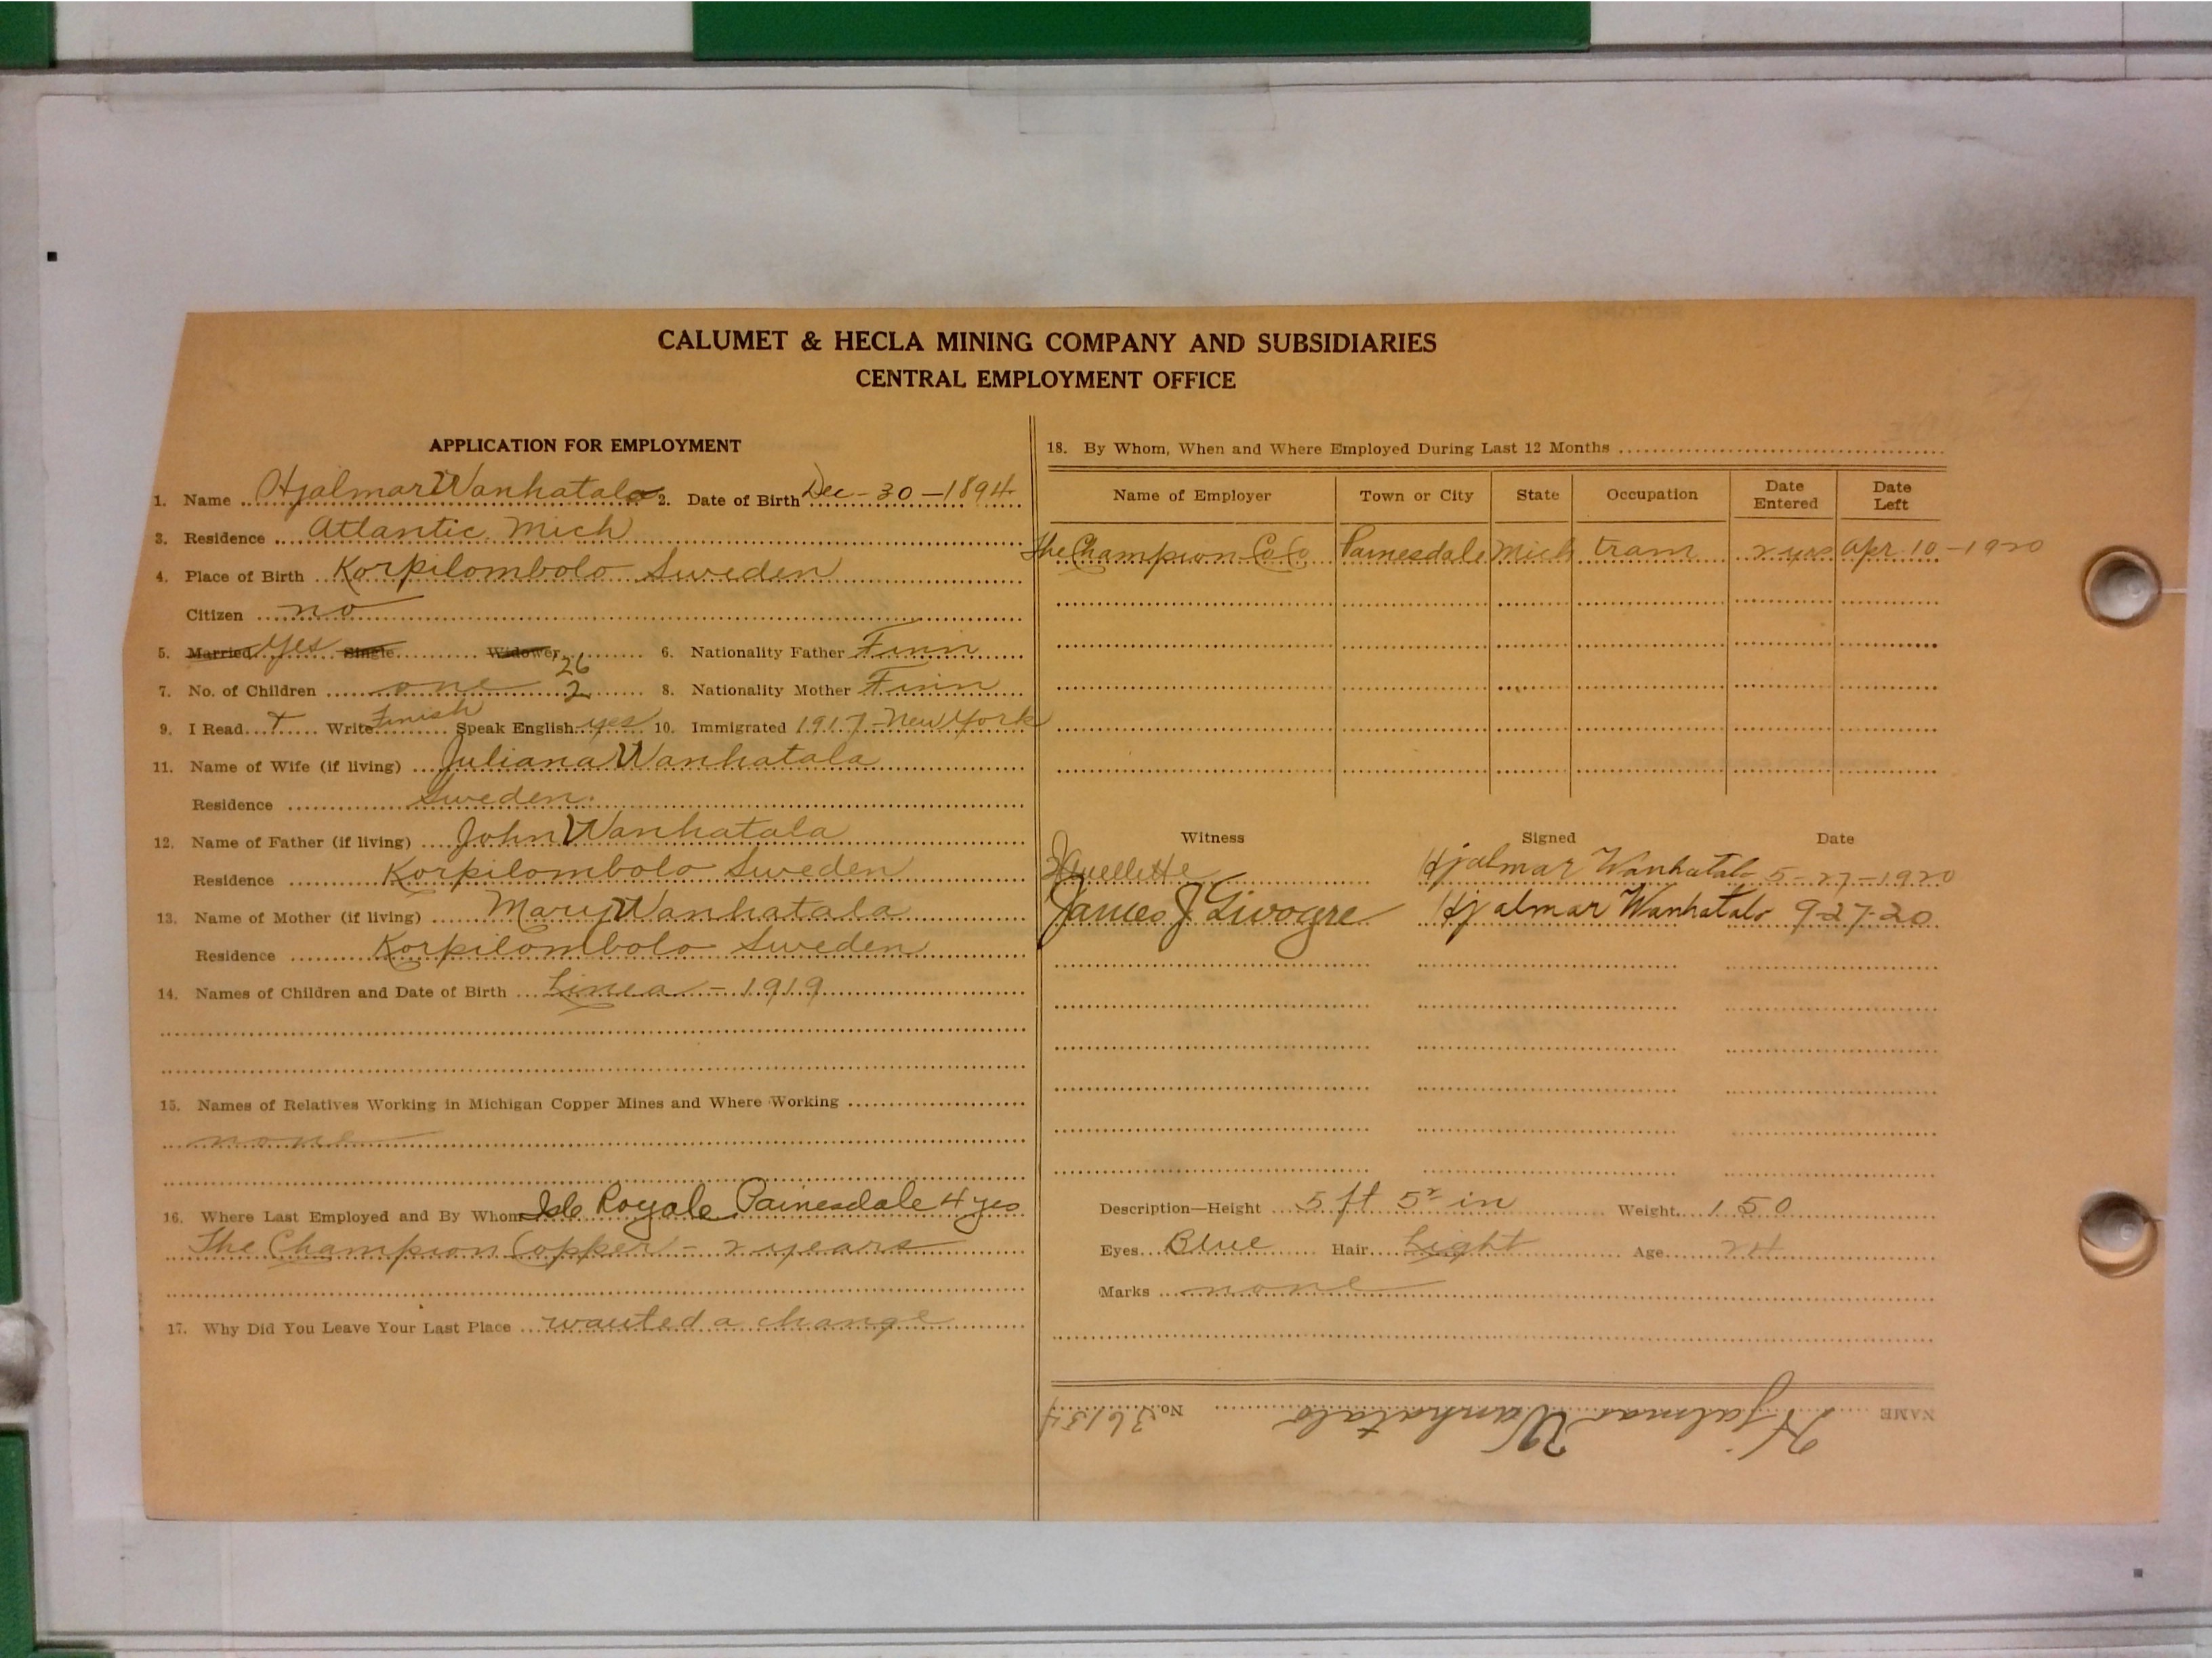 CALUMET & HECLA MINING COMPANY AND SUBSIDIARIES
CENTRAL EMPLOYMENT OFFICE
APPLICATION FOR EMPLOYMENT
1. Name Hjalmar Wanhatalo 2. Date of Birth Dec - 30 - 1894
3. Residence Atlantic Mich
4. Place of Birth Korpilombolo Sweden
Citizen no
5. Married yes Single Widower 6. Nationality Father Finn
26
7. No. of Children one 2 8. Nationality Mother Finn
9. I Read Write Finish Speak English yes 10. Immigrated 1917 - New York
11. Name of Wife (if living) Juliana Wanhatala
Residence Sweden.
12. Name of Father (if living) John Wanhatala
Residence Korpilombolo Sweden
13. Name of Mother (if living) Mary Wanhatala
Residence Korpilombolo Sweden
14. Names of Children and Date of Birth Linea - 1919
15. Names of Relatives Working in Michigan Copper Mines and Where Working
none
16. Where Last Employed and By Whom Isle Royale Painesdale
The Champion Copper - 2 years
17. Why Did You Leave Your Last Place wanted a change
18. By Whom, When and Where Employed During Last 12 Months
Name of Employer Town or City State Occupation Date Entered Date Left
The Champion Co Co Painesdale Mich tram 2 yrs Apr 10 - 1920
Witness Signed Date
Hjalmar Wanhatalo 5-27-1920
James J Hjalmar Wanhatalo 9-27-20
Description—Height 5 ft 5 in Weight 150
Eyes Blue Hair Light Age 24
Marks none
NAME Hjalmar Wanhatalo No.